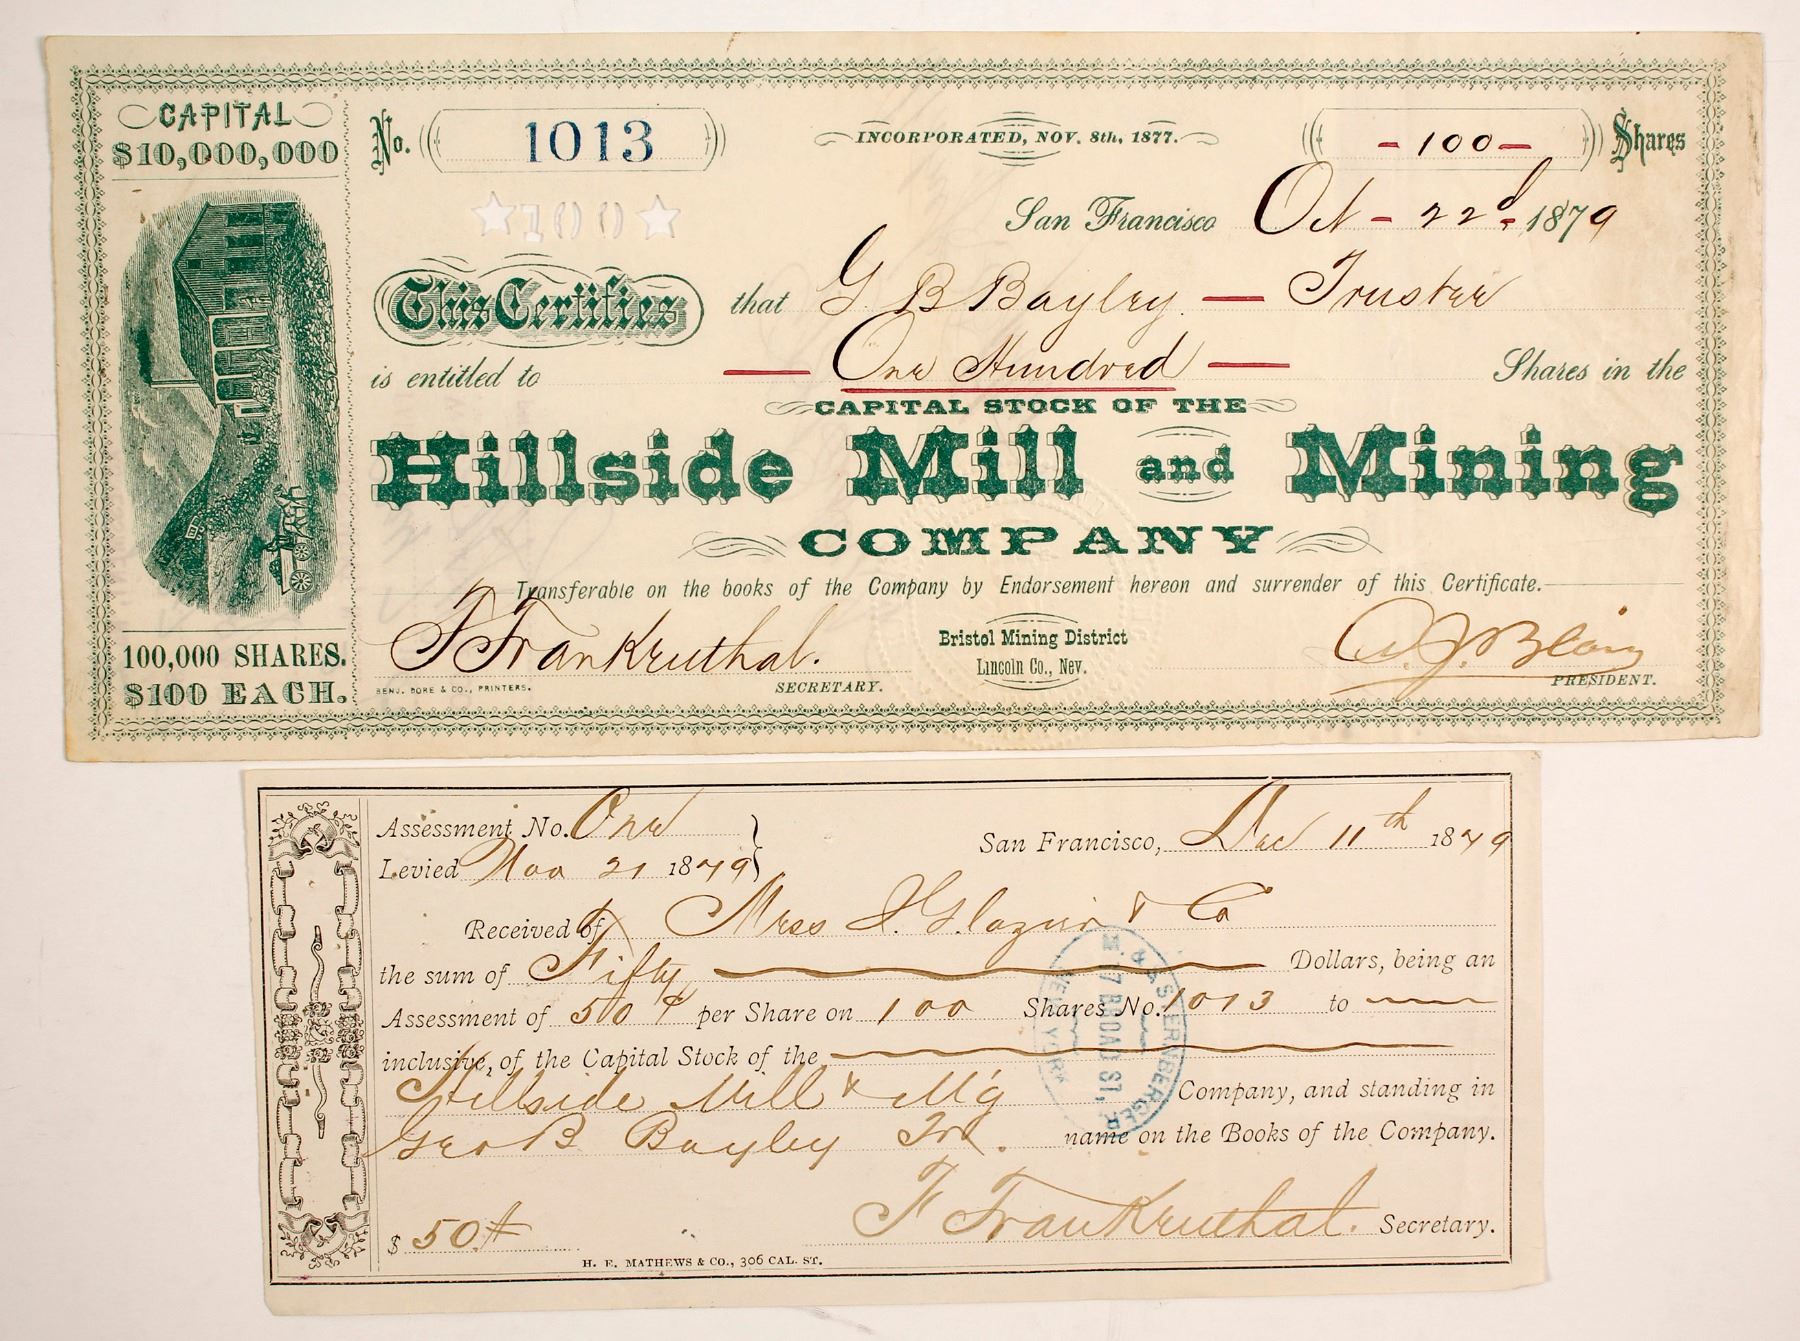 CAPITAL
$10,000,000
No. 1013
INCORPORATED, NOV. 8th, 1877.
-100- Shares
★100★
San Francisco Oct - 22d 1879
This Certifies that G B Bayley — Trustee
is entitled to — One Hundred — Shares in the
CAPITAL STOCK OF THE
Hillside Mill and Mining
COMPANY
Transferable on the books of the Company by Endorsement hereon and surrender of this Certificate.
F Frankenthal.
SECRETARY.
Bristol Mining District
Lincoln Co., Nev.
Blair
PRESIDENT.
BENJ. DORE & CO., PRINTERS.
100,000 SHARES.
$100 EACH.
Assessment No. One
Levied Nov 21 1879
San Francisco, Dec 11th 1879
Received of Mess J. Glazier & Co
the sum of Fifty Dollars, being an
Assessment of 50 ¢ per Share on 100 Shares No. 1013 to
inclusive, of the Capital Stock of the
Hillside Mill & M'g Company, and standing in
Geo B Bayley Tr. name on the Books of the Company.
$ 50
F Frankenthal. Secretary.
H. E. MATHEWS & CO., 306 CAL. ST.
& STERNBERGER
No. 7 BROAD ST.,
NEW YORK